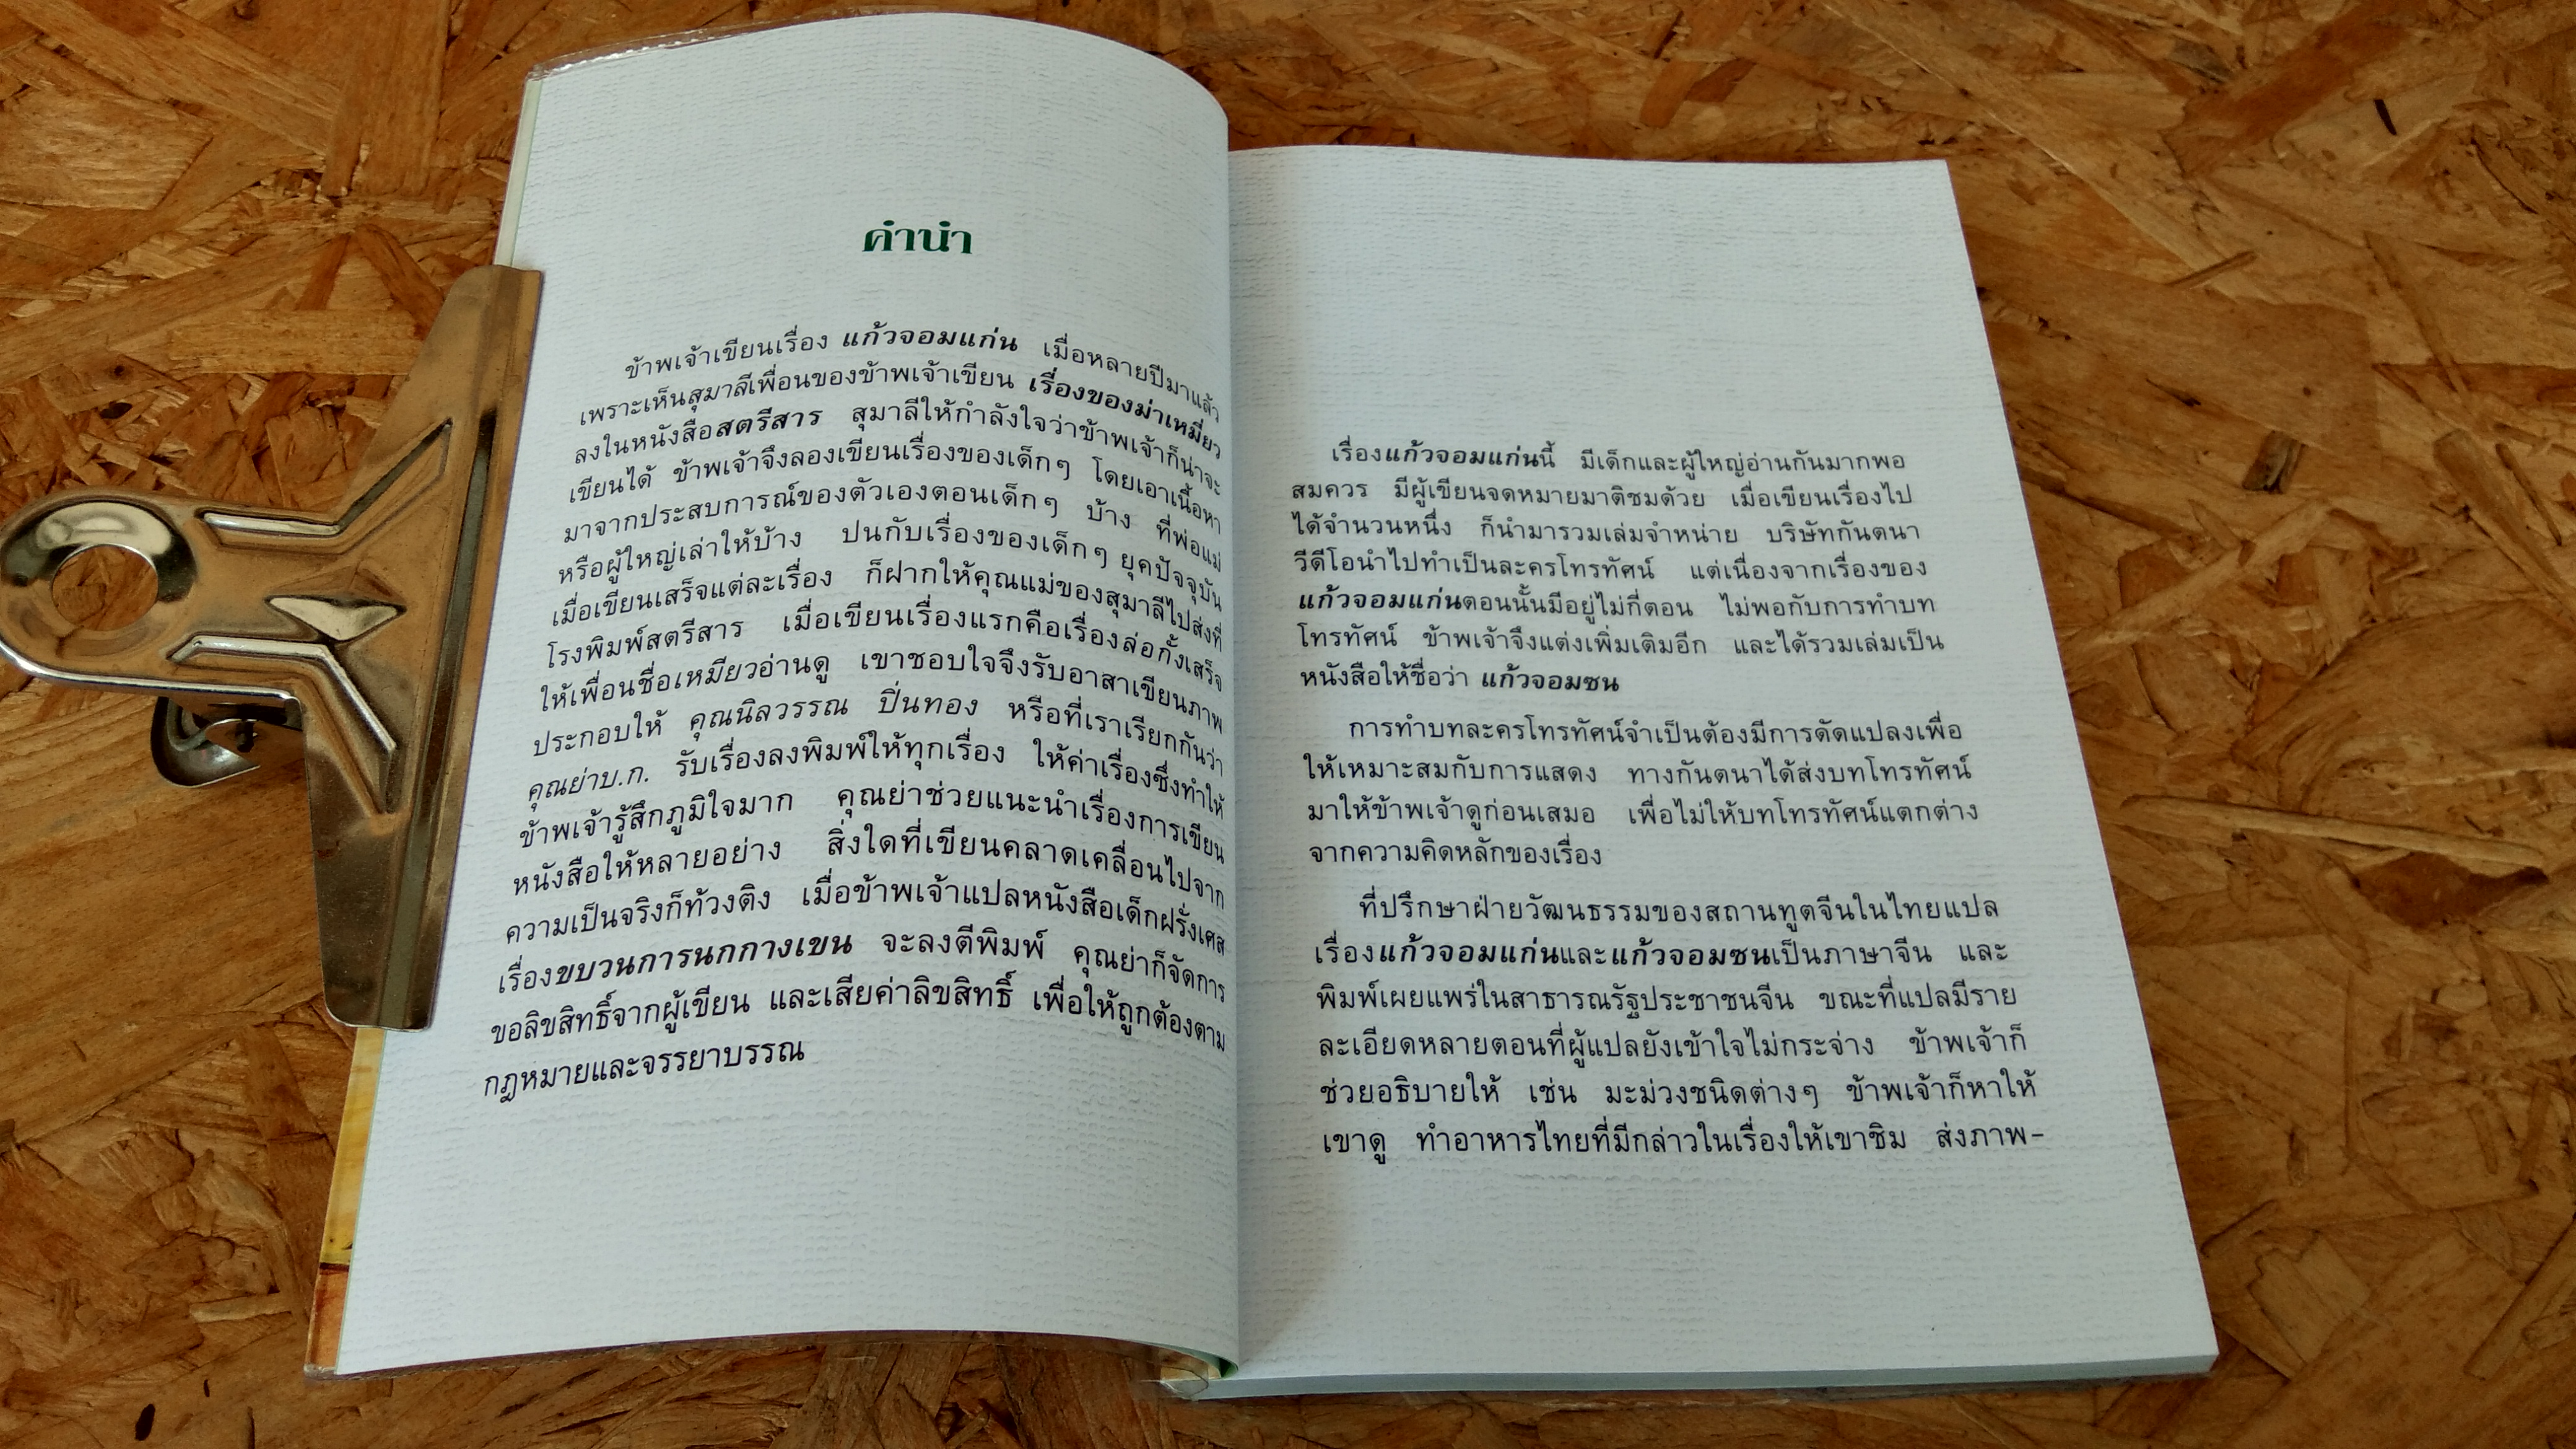 คำนำ
ข้าพเจ้าเขียนเรื่อง แก้วจอมแก่น เมื่อหลายปีมาแล้ว
เพราะเห็นสุมาลีเพื่อนของข้าพเจ้าเขียน เรื่องของม่าเหมี่ยว
ลงในหนังสือสตรีสาร สุมาลีให้กำลังใจว่าข้าพเจ้าก็น่าจะ
เขียนได้ ข้าพเจ้าจึงลองเขียนเรื่องของเด็กๆ โดยเอาเนื้อหา
มาจากประสบการณ์ของตัวเองตอนเด็กๆ บ้าง ที่พ่อแม่
หรือผู้ใหญ่เล่าให้บ้าง ปนกับเรื่องของเด็กๆ ยุคปัจจุบัน
เมื่อเขียนเสร็จแต่ละเรื่อง ก็ฝากให้คุณแม่ของสุมาลีไปส่งที่
โรงพิมพ์สตรีสาร เมื่อเขียนเรื่องแรกคือเรื่องล่อกั้งเสร็จ
ให้เพื่อนชื่อเหมียวอ่านดู เขาชอบใจจึงรับอาสาเขียนภาพ
ประกอบให้ คุณนิลวรรณ ปิ่นทอง หรือที่เราเรียกกันว่า
คุณย่าบ.ก. รับเรื่องลงพิมพ์ให้ทุกเรื่อง ให้ค่าเรื่องซึ่งทำให้
ข้าพเจ้ารู้สึกภูมิใจมาก คุณย่าช่วยแนะนำเรื่องการเขียน
หนังสือให้หลายอย่าง สิ่งใดที่เขียนคลาดเคลื่อนไปจาก
ความเป็นจริงก็ท้วงติง เมื่อข้าพเจ้าแปลหนังสือเด็กฝรั่งเศส
เรื่องขบวนการนกกางเขน จะลงตีพิมพ์ คุณย่าก็จัดการ
ขอลิขสิทธิ์จากผู้เขียน และเสียค่าลิขสิทธิ์ เพื่อให้ถูกต้องตาม
กฎหมายและจรรยาบรรณ
เรื่องแก้วจอมแก่นนี้ มีเด็กและผู้ใหญ่อ่านกันมากพอ
สมควร มีผู้เขียนจดหมายมาติชมด้วย เมื่อเขียนเรื่องไป
ได้จำนวนหนึ่ง ก็นำมารวมเล่มจำหน่าย บริษัทกันตนา
วีดีโอนำไปทำเป็นละครโทรทัศน์ แต่เนื่องจากเรื่องของ
แก้วจอมแก่นตอนนั้นมีอยู่ไม่กี่ตอน ไม่พอกับการทำบท
โทรทัศน์ ข้าพเจ้าจึงแต่งเพิ่มเติมอีก และได้รวมเล่มเป็น
หนังสือให้ชื่อว่า แก้วจอมซน
การทำบทละครโทรทัศน์จำเป็นต้องมีการดัดแปลงเพื่อ
ให้เหมาะสมกับการแสดง ทางกันตนาได้ส่งบทโทรทัศน์
มาให้ข้าพเจ้าดูก่อนเสมอ เพื่อไม่ให้บทโทรทัศน์แตกต่าง
จากความคิดหลักของเรื่อง
ที่ปรึกษาฝ่ายวัฒนธรรมของสถานทูตจีนในไทยแปล
เรื่องแก้วจอมแก่นและแก้วจอมซนเป็นภาษาจีน และ
พิมพ์เผยแพร่ในสาธารณรัฐประชาชนจีน ขณะที่แปลมีราย
ละเอียดหลายตอนที่ผู้แปลยังเข้าใจไม่กระจ่าง ข้าพเจ้าก็
ช่วยอธิบายให้ เช่น มะม่วงชนิดต่างๆ ข้าพเจ้าก็หาให้
เขาดู ทำอาหารไทยที่มีกล่าวในเรื่องให้เขาชิม ส่งภาพ-